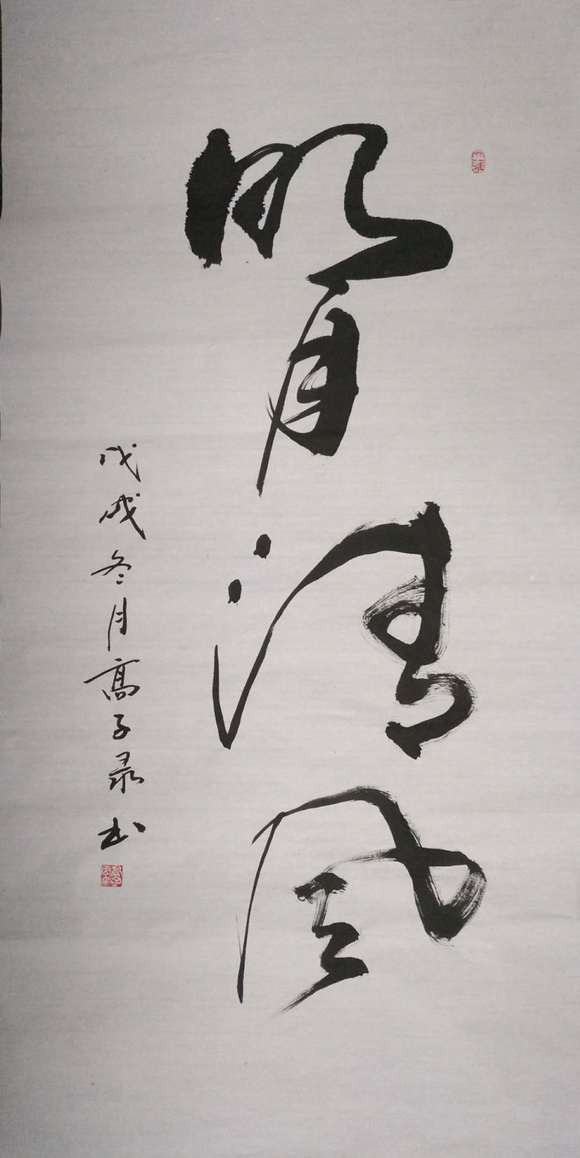 明月清风
戊戌冬月高子录书